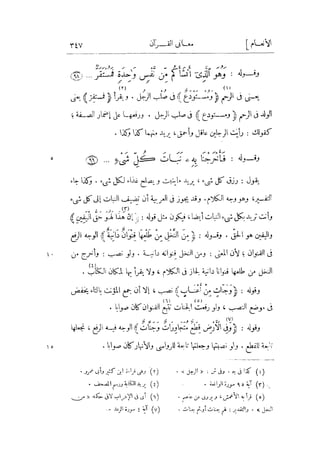 الأنعام ] معانى القرآن ٣٤٧
وقوله : وَهُوَ ٱلَّذِىٓ أَنشَأَكُم مِّن نَّفْسٍ وَٰحِدَةٍ فَمُسْتَقَرٌّ ... (٩٨)
يعنى فى الرحم ﴿ وَمُسْتَوْدَعٌ ﴾ فى صلب الرجل . ويقرأ ﴿ فمستقِرّ ﴾ يعنى
الولد فى الرحم ﴿ ومستودع ﴾ فى صلب الرجل . ورفعها على إضمار الصفة ؛
كقولك : رأيت الرجلين عاقل وأحمق ، يريد منهما كذا وكذا .
٥ وقوله : فَأَخْرَجْنَا بِهِۦ نَبَاتَ كُلِّ شَىْءٍ ... (٩٩)
يقول : رزق كل شىء ، يريد ما ينبت و يصلح غذاء لكل شىء . وكذا جاء
التفسير ، وهو وجه الكلام . وقد يجوز فى العربية أن تضيف النبات إلى كل شىء
وأنت تريد بكل شىء النبات أيضا ، فيكون مثل قوله : ﴿ إِنَّ هَٰذَا لَهُوَ حَقُّ الْيَقِينِ ﴾ (٣)
واليقين هو الحق . وقوله : ﴿ مِنَ النَّخْلِ مِنْ طَلْعِهَا قِنْوَانٌ دَانِيَةٌ ﴾ الوجه الرفع
١٠ فى القنوان ؛ لأن المعنى : ومن النخل قنوانه دانية . ولو نصب : وأخرج من
النخل من طلعها قنوانا دانية لجاز فى الكلام ، ولا يقرأ بها لمكان الكتاب .
وقوله : ﴿ وَجَنَّاتٍ مِنْ أَعْنَابٍ ﴾ نصب ، إلا أن جمع المؤنث بالتاء يخفض
فى موضع النصب . ولو رفعت الجنات تتبع القنوان كان صوابا .
وقوله : ﴿ وَفِى الْأَرْضِ قِطَعٌ مُتَجَاوِرَاتٌ وَجَنَّاتٌ ﴾ الوجه فيه الرفع ، تجعلها
١٥ تابعة للقطع . ولو نصبتها وجعلتها تابعة للرواسى والأنهار كان صوابا .
(١) كذا فى ج . وفى ش : « الرجل » . (٢) وهى قراءة ابن كثير وأبى عمرو .
(٣) آية ٩٥ سورة الواقعة . (٤) يريد الكتابة ورسم المصحف .